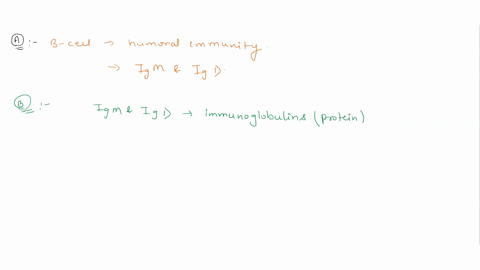 A :- B-cell → humoral immunity.
→ IgM & IgD.
B :- IgM & IgD → immunoglobulins (protein)